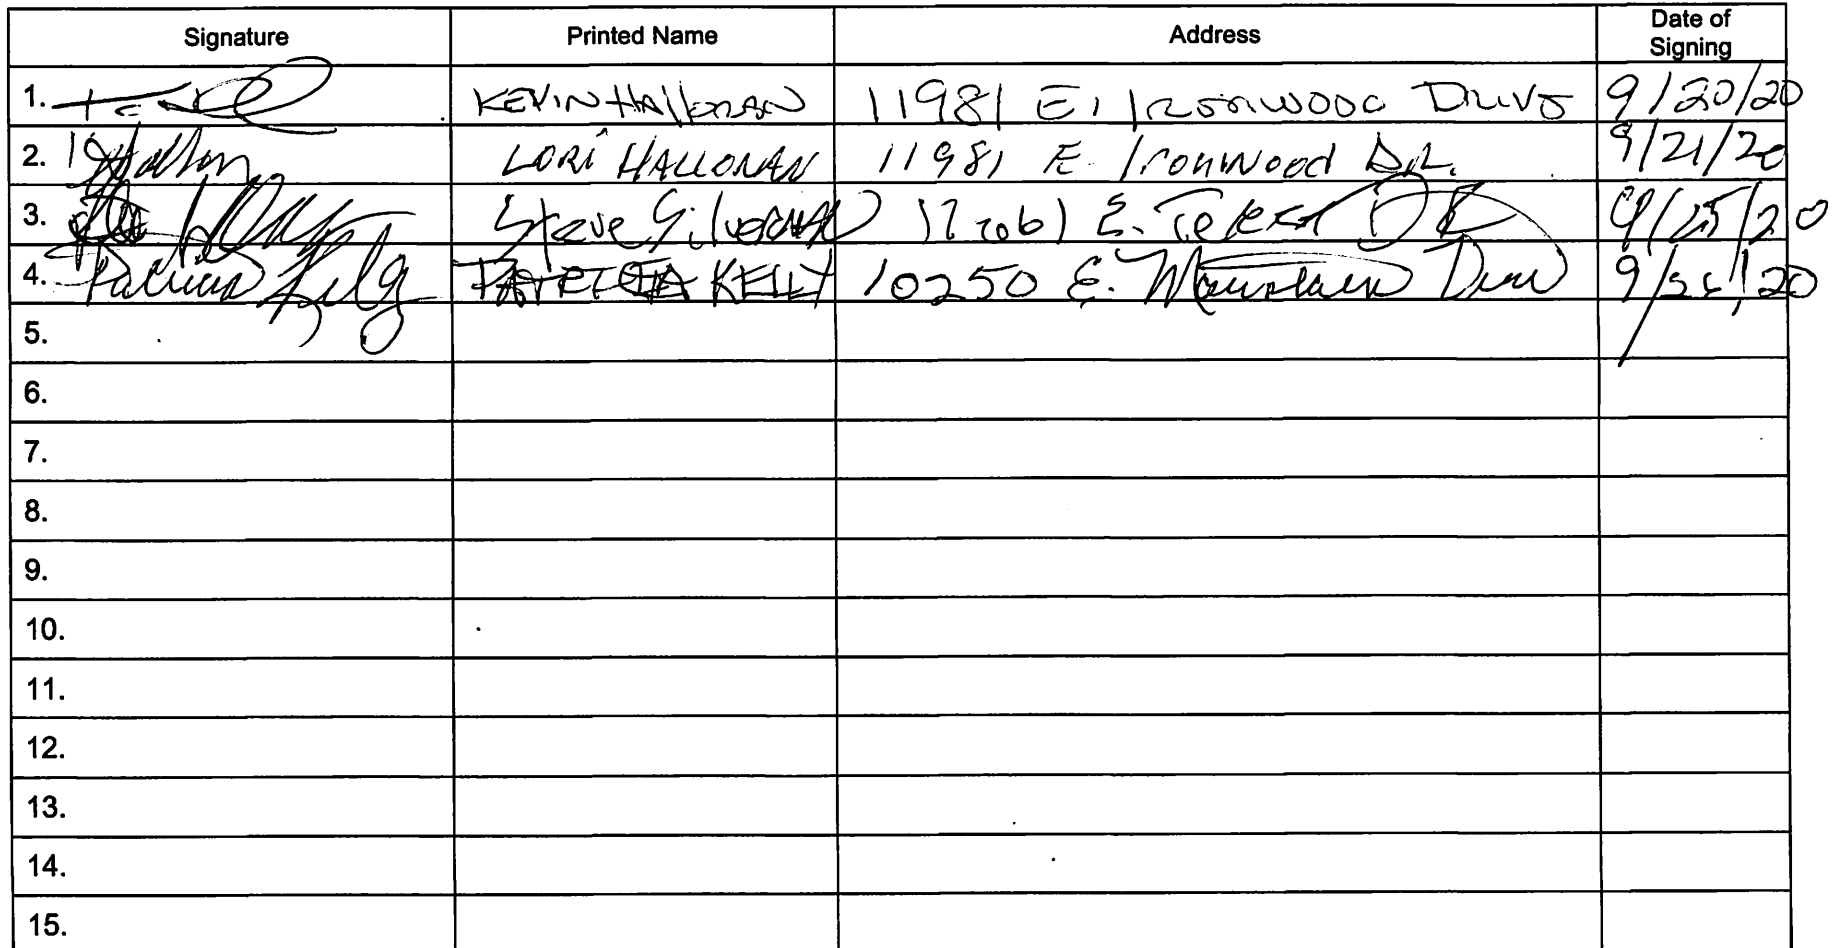 Signature Printed Name Address Date of Signing
1. KEVIN HALLORAN 11981 E. IRONWOOD DRIVE 9/20/20
2. LORI HALLORAN 11981 E. Ironwood DR. 9/21/20
3. Steve E. DR 9/25/20
4. Patricia Kelly PATRICIA KELLY 10250 E. Mountain 9/ /20
5.
6.
7.
8.
9.
10.
11.
12.
13.
14.
15.